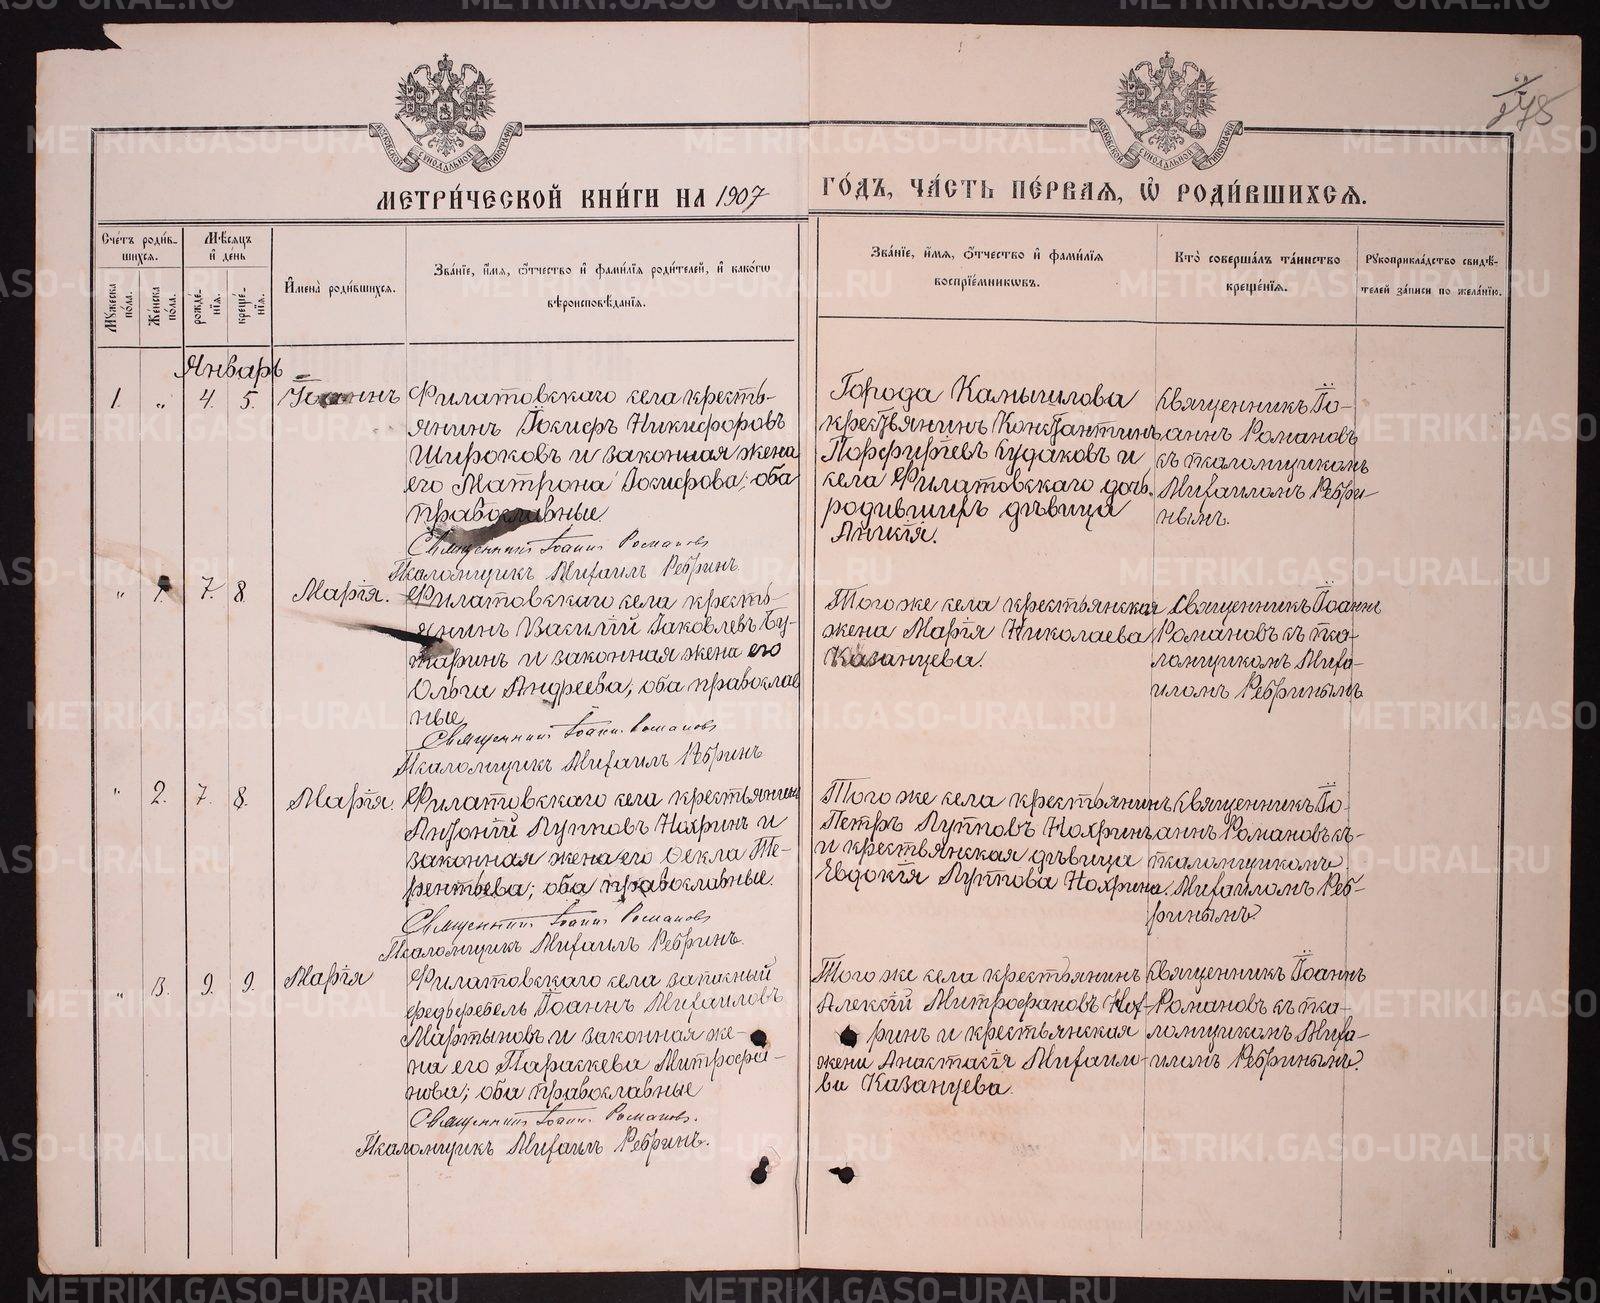 МЕТРИ́ЧЕСКОЙ КНИ́ГИ НА 1907 ГО́ДЪ, ЧА́СТЬ ПЕ́РВАЯ, Ѡ РОДИ́ВШИХСЯ.
278
Сче́тъ роди́в-
шихся.
Мꙋжеска по́ла.
Же́нска по́ла.
Мѣ́сяцъ
и҆ день
рожде-
нїя.
креще́-
нїя.
И҆мена̀ роди́вшихся.
Зва́нїе, и҆́мя, ѻ҆́тчество и҆ фами́лїя роди́телей, и҆ како́гѡ
вѣроисповѣ́данїя.
Зва́нїе, и҆́мя, ѻ҆́тчество и҆ фами́лїя
воспрїе́мникѡвъ.
Кто̀ соверша́лъ та́инство
креще́нїя.
Рꙋкоприкла́дство свидѣ́-
телей за́писи по жела́нїю.
Январь
1. " 4. 5.
Іоаннъ
Филатовскаго села кресть-
янинъ Іосифъ Никифоровъ
Широковъ и законная жена
его Матрона Іосифова; оба
православные.
Священникъ Іоаннъ Романовъ
Псаломщикъ Михаилъ Ребринъ.
Города Камышлова
крестьянинъ Константинъ
Порфирiевъ Судаковъ и
села Филатовскаго дочь
родившихъ дѣвица
Анисiя.
Священникъ Іо-
аннъ Романовъ
съ псаломщикомъ
Михаиломъ Ребри-
нымъ.
" 1. 7. 8.
Марiя.
Филатовскаго села кресть-
янинъ Василiй Іаковлевъ Бу-
таринъ и законная жена его
Ольга Андреева; оба православ
ные
Священникъ Іоаннъ Романовъ
Псаломщикъ Михаилъ Ребринъ
Того же села крестьянская
жена Марiя Николаева
Казанцева.
Священникъ Іоаннъ
Романовъ съ пса-
ломщикомъ Миха-
иломъ Ребринымъ
" 2. 7. 8.
Марiя.
Филатовскаго села крестьянинъ
Антонiй Лупповъ Нохринъ и
законная жена его Ѳекла Те-
рентьева; оба православные.
Священникъ Іоаннъ Романовъ
Псаломщикъ Михаилъ Ребринъ.
Того же села крестьянинъ
Петръ Лупповъ Нохринъ
и крестьянская дѣвица
Евдокiя Луппова Нохрина.
Священникъ Іо-
аннъ Романовъ съ
псаломщикомъ
Михаиломъ Реб-
ринымъ.
" 3. 9. 9.
Марiя
Филатовскаго села запасный
федьфебель Іоаннъ Михаиловъ
Мартыновъ и законная же-
на его Параскева Митрофа-
нова; оба православные
Священникъ Іоаннъ Романовъ.
Псаломщикъ Михаилъ Ребринъ.
Того же села крестьянинъ
Алексiй Митрофановъ Нох-
ринъ и крестьянская
жена Анастасiя Михаило-
ва Казанцева.
Священникъ Іоаннъ
Романовъ съ пса-
ломщикомъ Миха-
иломъ Ребринымъ.
METRIKI.GASO-URAL.RU